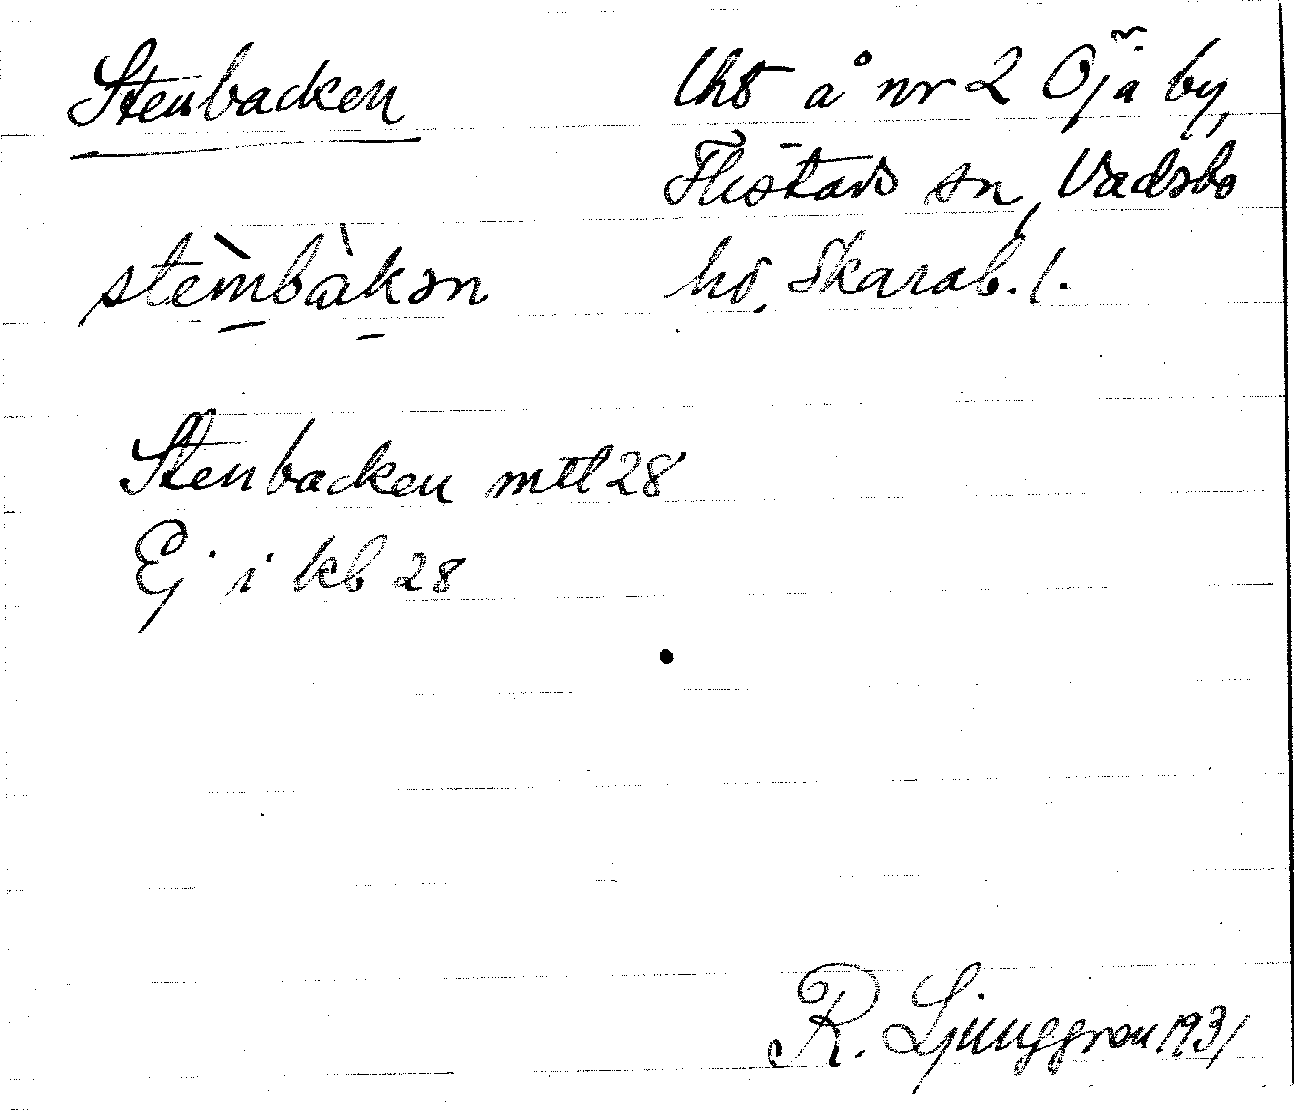 Stenbacken
lht å nr 2 Öjä by,
Flistads sn, Vadsbo
hd, Skarab. l.
stèmbàkən
Stenbacken mtl 28
Ej i kb 28
R. Ljunggren 1931